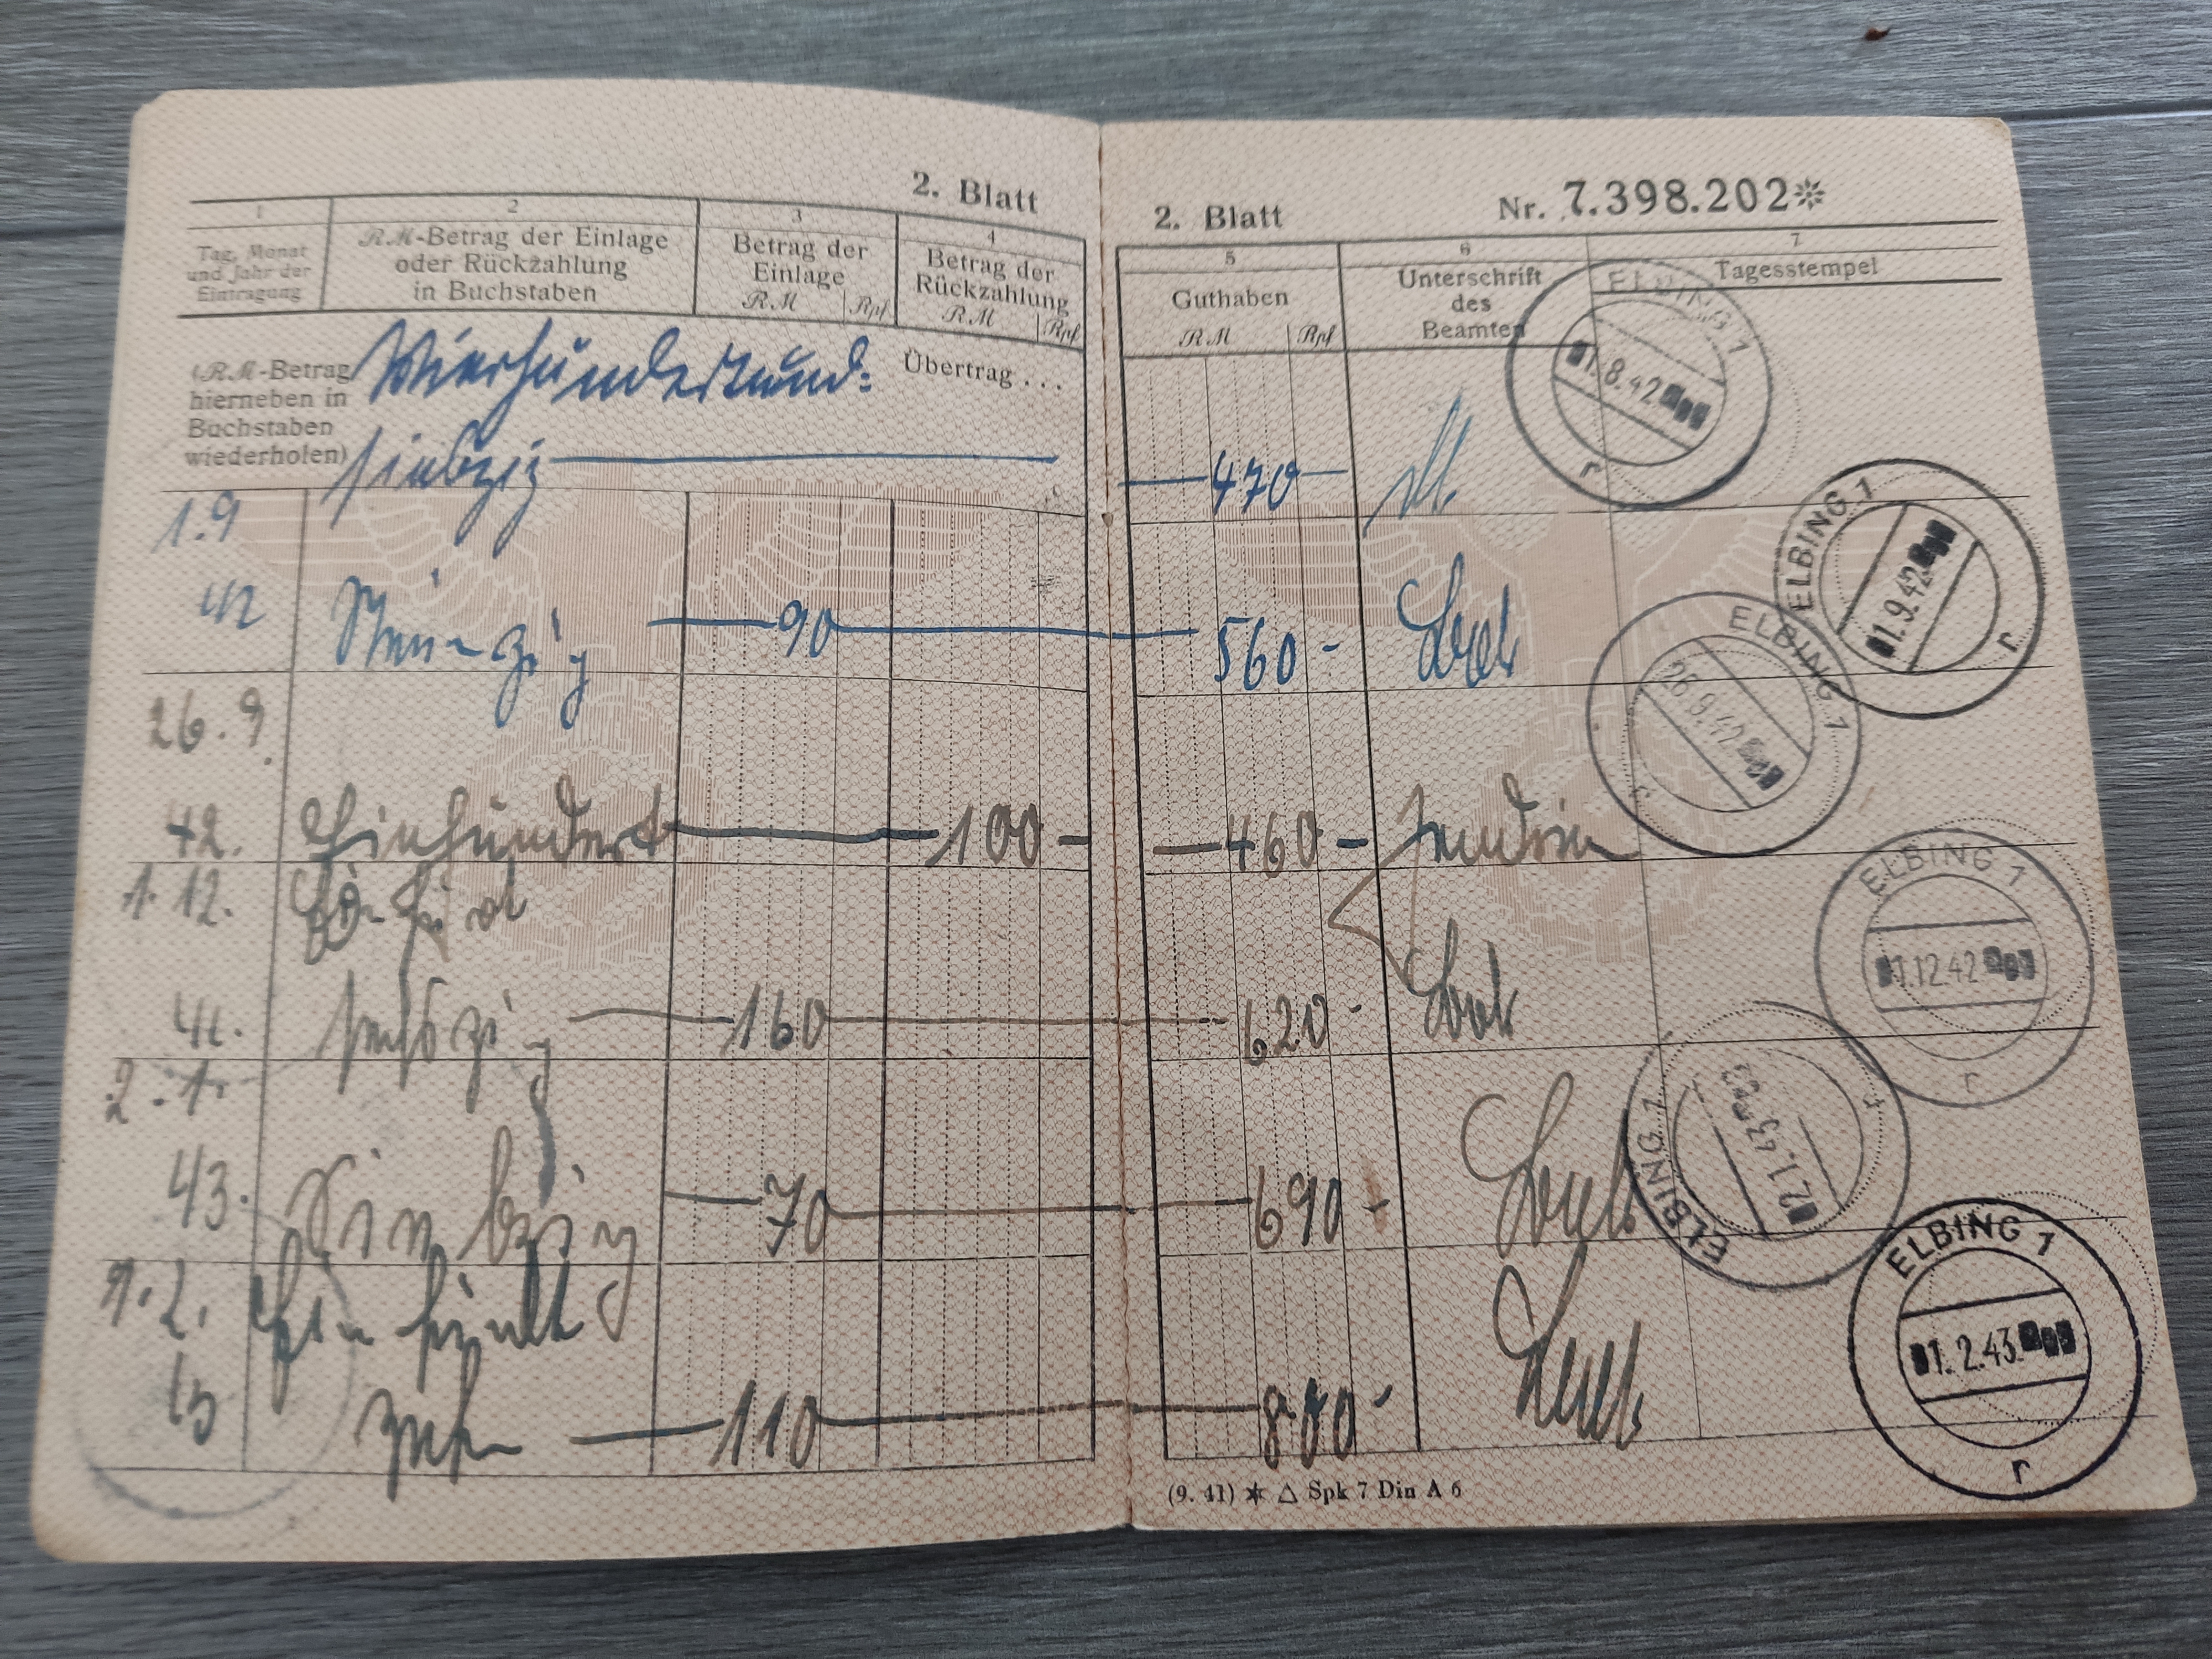 2. Blatt
1 2 3 4
Tag, Monat und Jahr der Eintragung
RM-Betrag der Einlage oder Rückzahlung in Buchstaben
Betrag der Einlage
RM Rpf
Betrag der Rückzahlung
RM Rpf
(RM-Betrag hierneben in Buchstaben wiederholen)
Vierhundertund=
siebzig
Übertrag . . .
1.9
42 Neunzig 90
26.9.
42. Einhundert 100 -
1.12. Einhundert
42. sechzig 160
2.1.
43. Siebzig 70
1.2. Einhundert
43 zehn 110
2. Blatt Nr. 7.398.202*
5 6 7
Guthaben
RM Rpf
Unterschrift des Beamten
Tagesstempel
470
560 -
460 -
620 -
690 -
800 -
ELBING 1
1.8.42
r
ELBING 1
1.9.42
r
ELBING 1
26.9.42
r
ELBING 1
1.12.42
r
ELBING 1
2.1.43
r
ELBING 1
1.2.43
r
(9. 41) * △ Spk 7 Din A 6